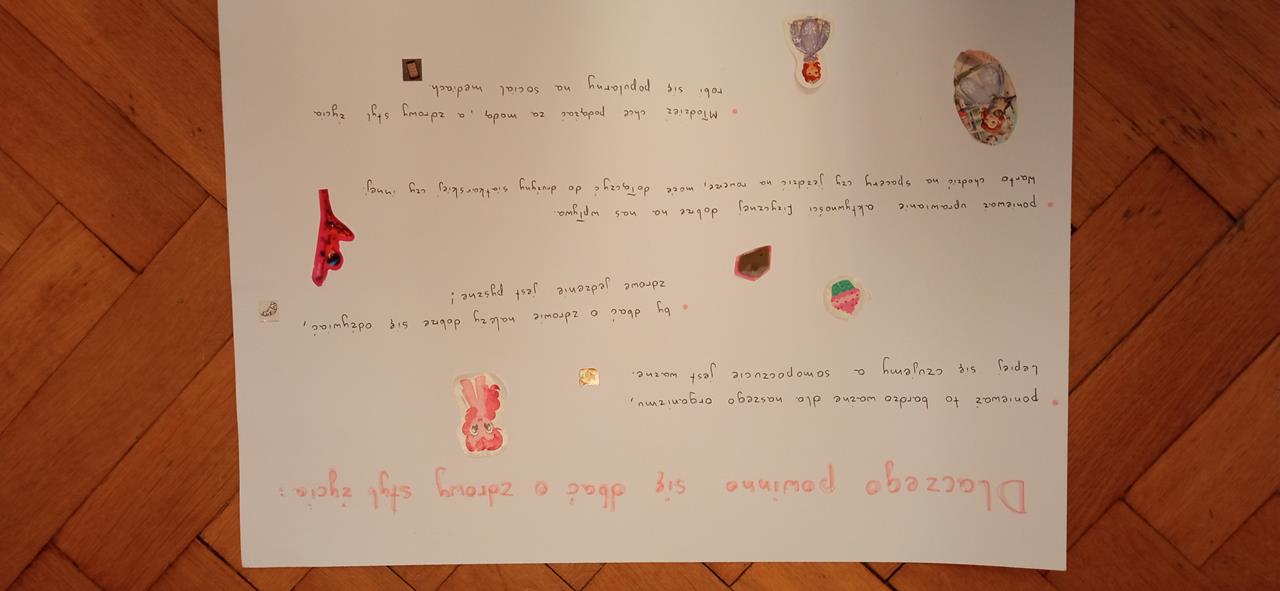 Dlaczego powinno się dbać o zdrowy styl życia:
ponieważ to bardzo ważne dla naszego organizmu,
Lepiej się czujemy a samopoczucie jest ważne.
by dbać o zdrowie należy dobrze się odżywiać,
zdrowe jedzenie jest pyszne!
ponieważ uprawianie aktywności fizycznej dobrze na nas wpływa.
Warto chodzić na spacery czy jeździć na rowerze, może dołączyć do drużyny siatkarskiej czy innej.
Młodzież chce podążać za modą, a zdrowy styl życia
robi się popularny na social mediach.